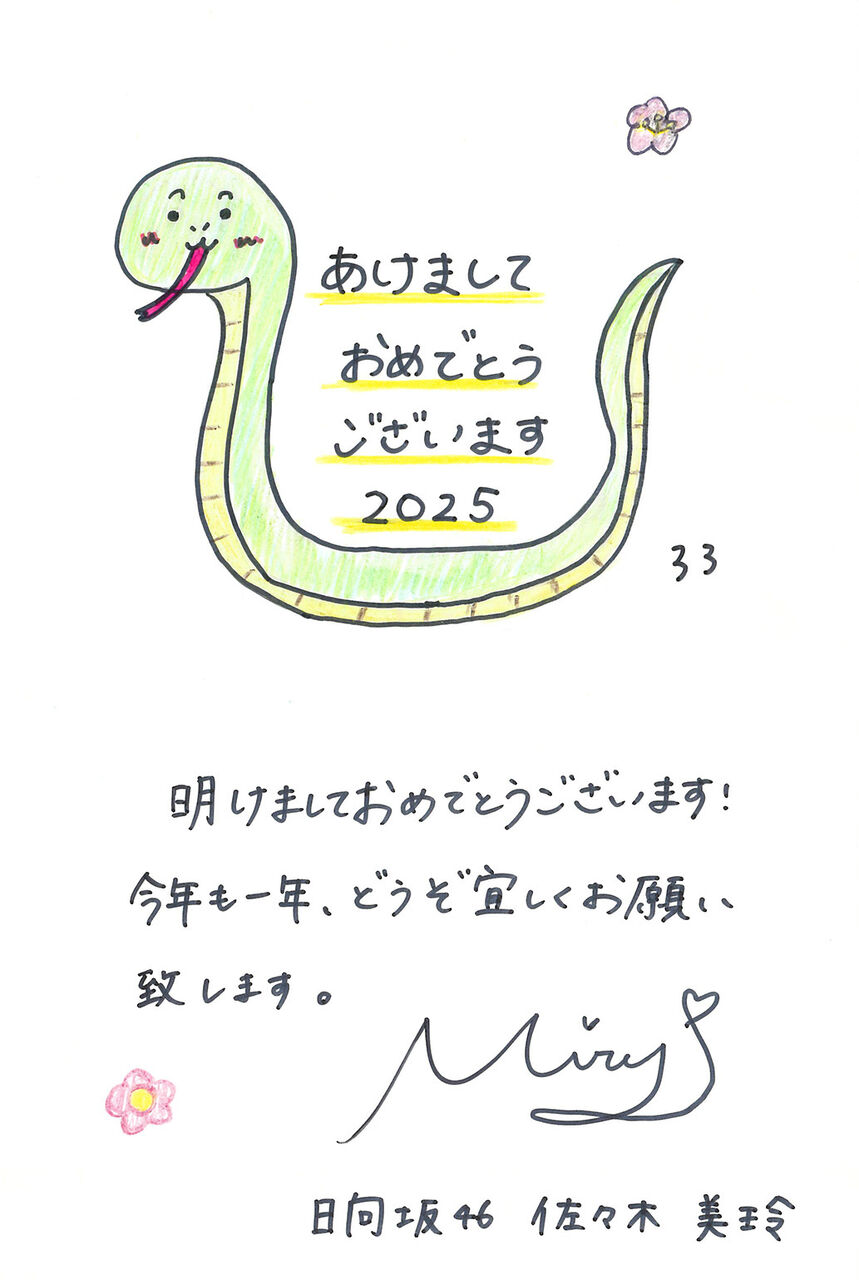 あけまして
おめでとう
ございます
2025
33
明けましておめでとうございます!
今年も一年、どうぞ宜しくお願い
致します。
Mirei
日向坂46 佐々木 美玲